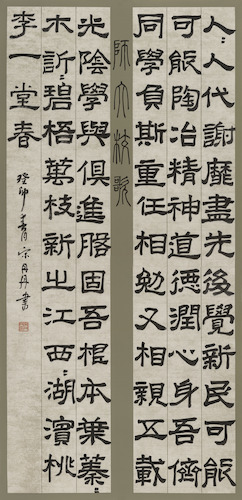 師大校歌
人〻人代謝靡盡先後覺新民可能
可能陶冶精神道德潤心身吾儕
同學負斯重任相勉又相親五載
光陰學與俱進固吾根本葉蓁〻
木訢〻碧梧萬枝新之江西〻湖濱桃
李一堂春
癸卯書